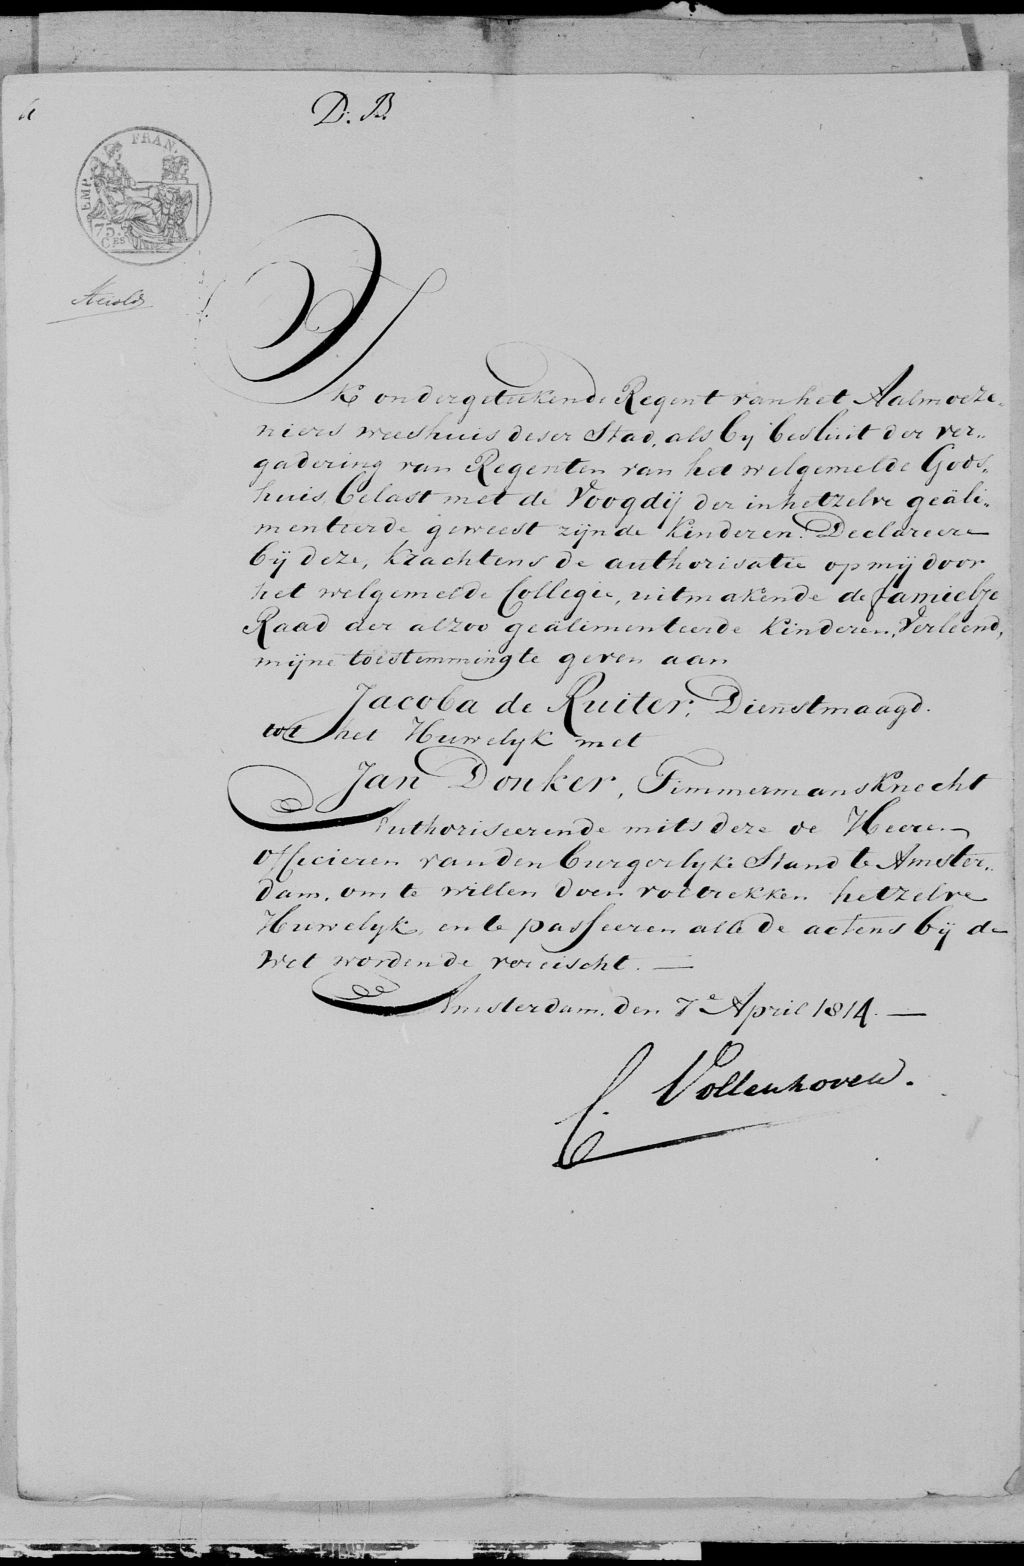 D. B.
EMP. FRAN.
75.
CES
Ik ondergeteekende Regent van het Aalmoeze-
niers weeshuis deser Stad, als by besluit der ver-
gadering van Regenten van het welgemelde Gods-
huis, belast met de Voogdij der in hetzelve geäli-
menteerde geweest zijnde Kinderen. Declareere
bij deze, krachtens de authorisatie op mij door
het welgemelde Collegie, uitmakende de famielje
Raad der alzoo geälimenteerde Kinderen, Verleend,
mijne toestemming te geven aan
Jacoba de Ruiter, Dienstmaagd.
tot het Huwelyk met
Jan Donker, Timmermans Knecht
Authoriseerende mits deze de Heeren
Officieren van den burgerlyke Stand te Amster-
dam, om te willen doen voltrekken hetzelve
Huwelyk, en te passeeren alle de actens bij de
Wet wordende vereischt. —
Amsterdam, den 7e April 1814. —
C. Vollenhoven.